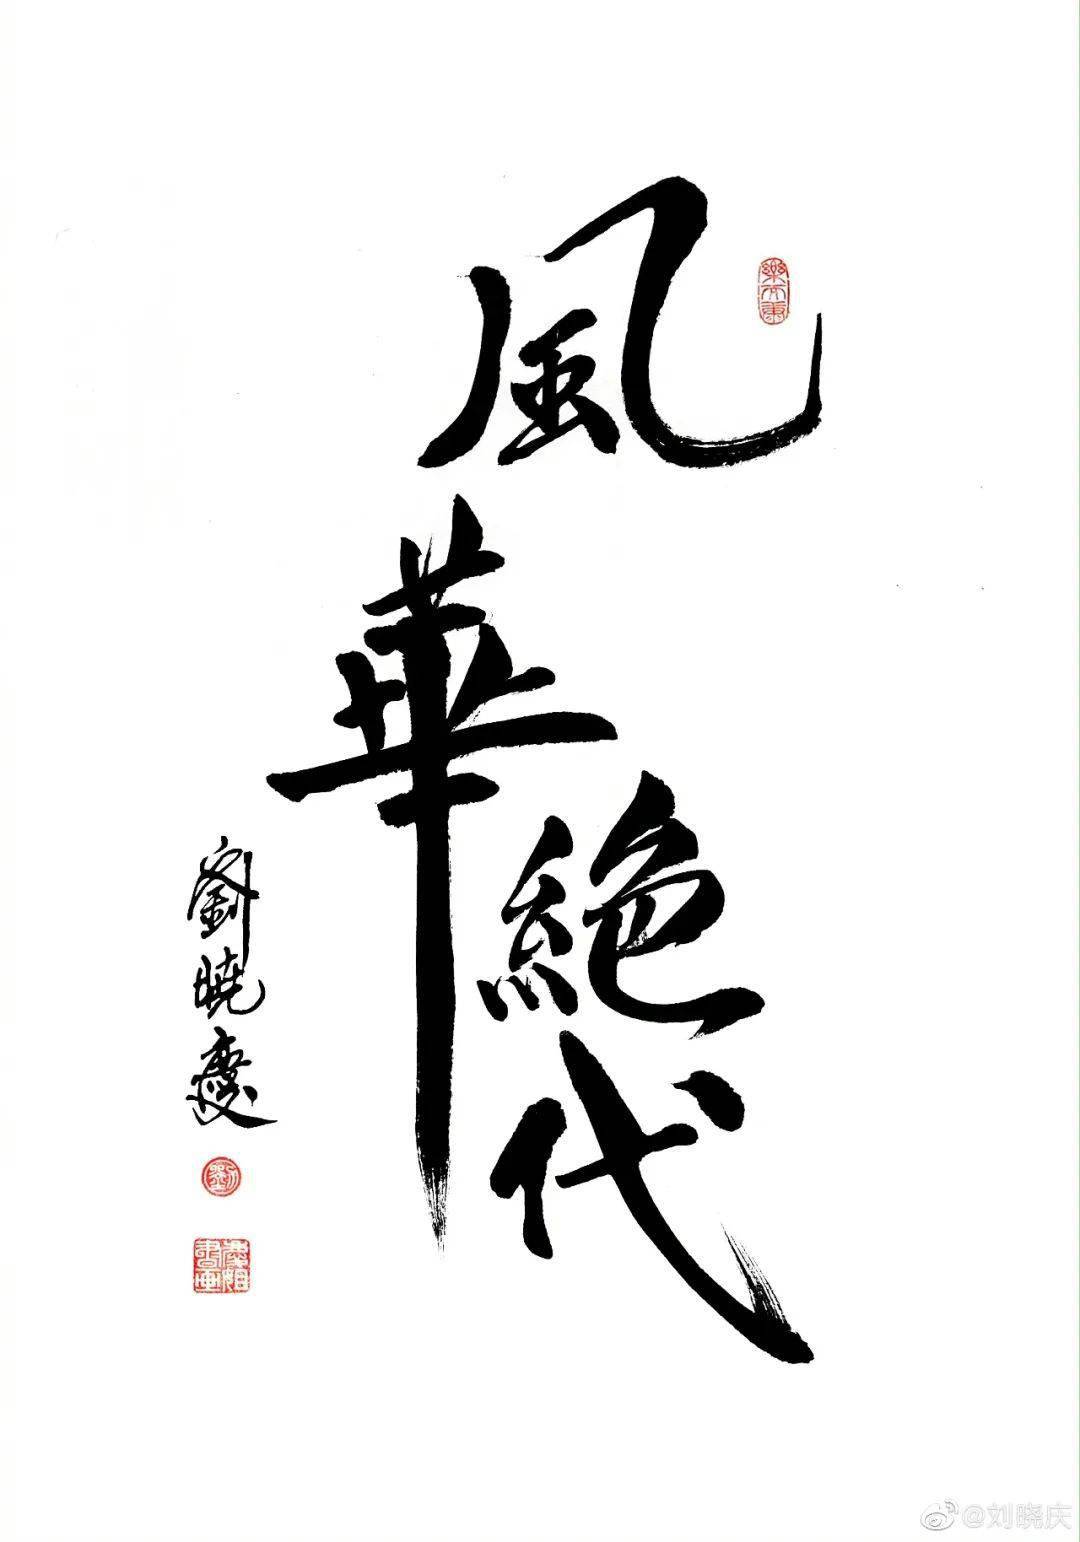 風華絕代
劉曉慶
劉
@刘晓庆